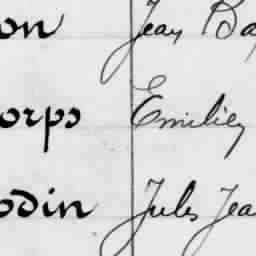 on Jean Ba
orps Emilien
odin Jules Jea